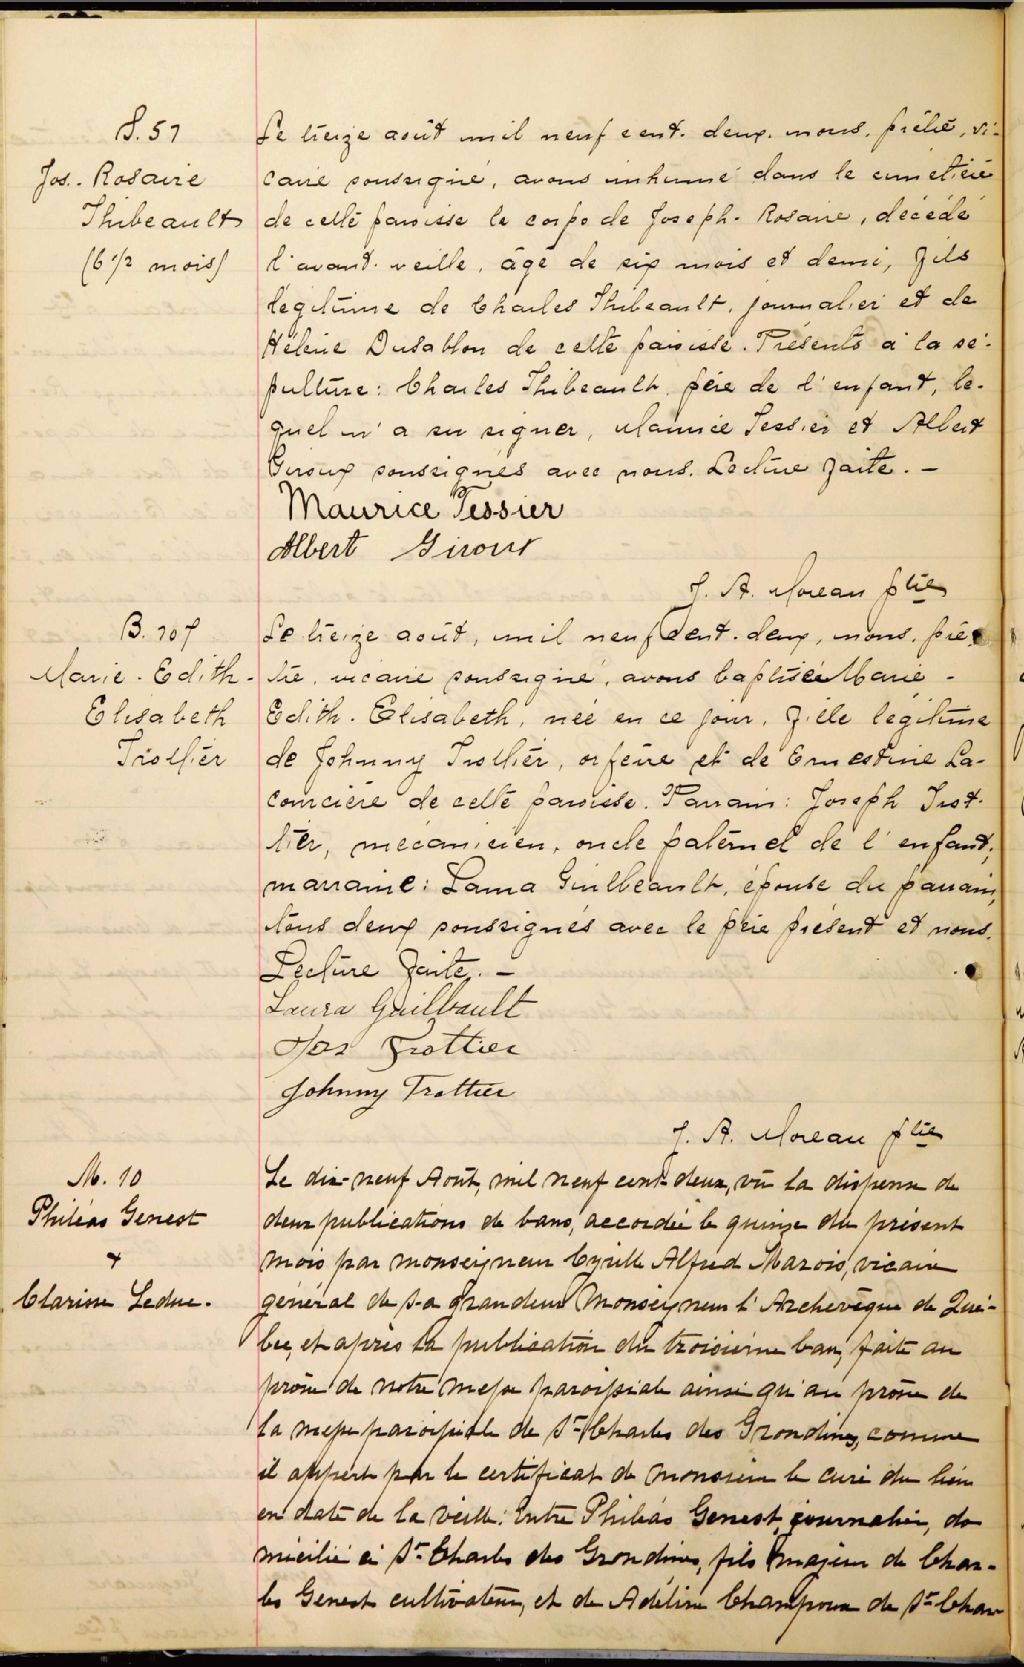 S. 57
Jos. Rosaire
Thibeault
(6 1/2 mois)
Le treize août mil neuf cent-deux, nous, prêtre, vi-
caire soussigné, avons inhumé dans le cimetière
de cette paroisse le corps de Joseph-Rosaire, décédé
l'avant-veille, âgé de six mois et demi, fils
légitime de Charles Thibeault, journalier et de
Hélène Dusablon de cette paroisse. Présents à la sé-
pulture: Charles Thibeault, père de l'enfant, le-
quel n'a su signer, Maurice Tessier et Albert
Giroux soussignés avec nous. Lecture faite. -
Maurice Tessier
Albert Giroux
J. A. Moreau ptre
B. 107
Marie-Edith-
Elisabeth
Trottier
Le treize août, mil neuf cent-deux, nous, prê-
tre, vicaire soussigné, avons baptisée Marie-
Edith-Elisabeth, née en ce jour, fille légitime
de Johnny Trottier, orfèvre et de Ernestine La-
courcière de cette paroisse. Parrain: Joseph Trot-
tier, mécanicien, oncle paternel de l'enfant;
marraine: Laura Guilbeault, épouse du parrain,
tous deux soussignés avec le père présent et nous.
Lecture faite. -
Laura Guilbault
Jos Trottier
Johnny Trottier
J. A. Moreau ptre
M. 10
Philéas Genest
&
Clarisse Leduc.
Le dix-neuf Août, mil neuf cent-deux, vû la dispense de
deux publications de bans, accordée le quinze du présent
mois par monseigneur Cyrille Alfred Marois, vicaire
général de Sa grandeur Monseigneur l'Archevêque de Qué-
bec, et après la publication du troisième ban, faite au
prône de notre messe paroissiale ainsi qu'au prône de
la messe paroissiale de St-Charles des Grondines, comme
il appert par le certificat de monsieur le curé du lieu
en date de la veille: Entre Philéas Genest, journalier, do
micilié à St-Charles des Grondines, fils majeur de Char-
les Genest cultivateur, et de Adéline Champoux de St-Char